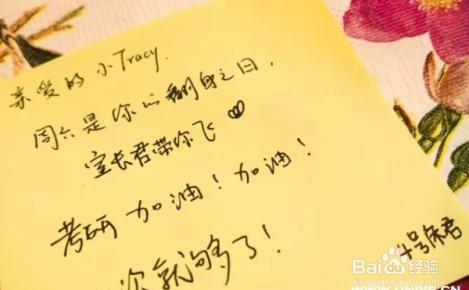 亲爱的 小Tracy.
周六是你的翻身之日,
室长君带你飞♡
考研 加油!加油!
次就够了!
4号床君
Baidu经验